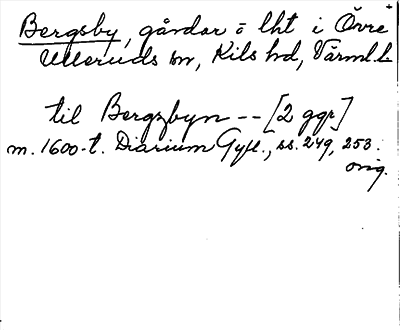 Bergsby, gårdar o lht i Övre
Ulleruds sn, Kils hd, Värml. l.
til Bergzbyn -- [2 ggr]
m. 1600-t. Diarium Gyll., ss. 249, 253.
orig.